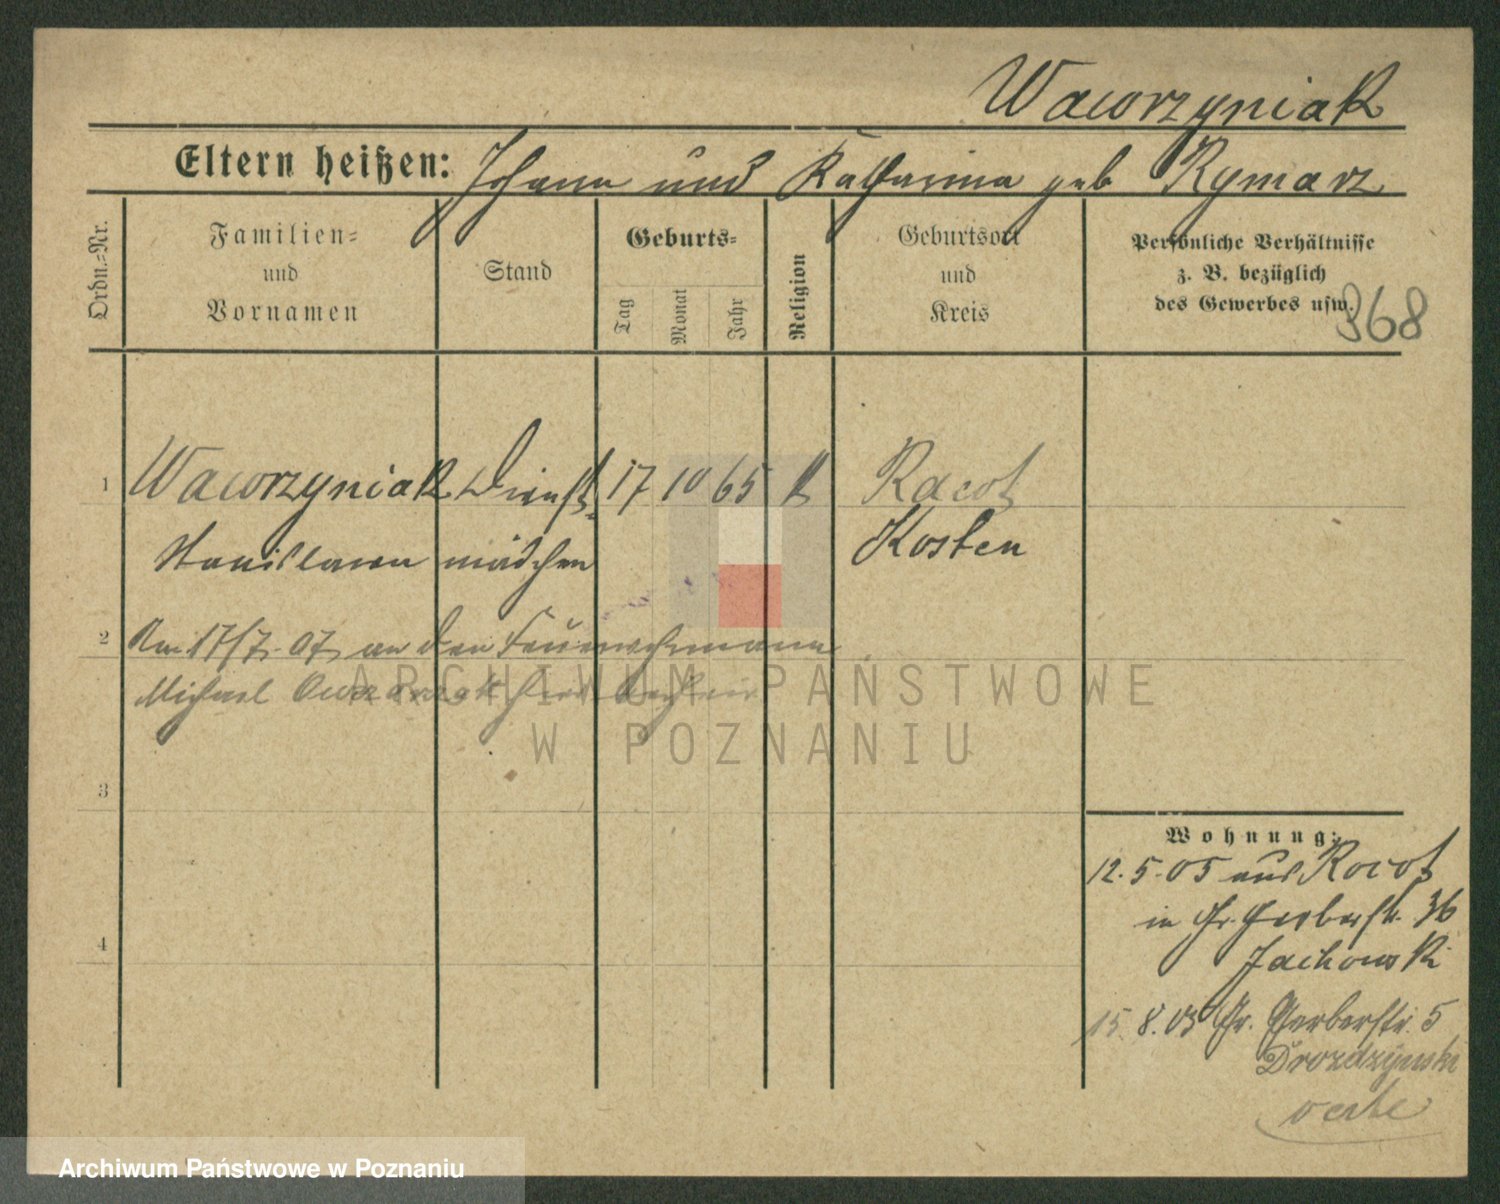 Wawrzyniak
Eltern heißen: Johann und Katharina geb Rymarz
Ordn.=Nr.
Familien=
und
Vornamen
Stand
Geburts=
Tag
Monat
Jahr
Religion
Geburtsort
und
Kreis
Persönliche Verhältnisse
z. B. bezüglich
des Gewerbes usw.
368
1 Wawrzyniak Dienst= 17 10 65 k Racot
Stanislawa mädchen Kosten
2 Am 17/7. 07 an den Feuerwehrmann
Michael
ARCHIWUM PAŃSTWOWE
W POZNANIU
3
4
Wohnung:
12. 5. 05 aus Racot
in Gr. Gerberstr. 36
Jachowski
15. 8. 05 Gr. Gerberstr. 5
Drozdzynski
Archiwum Państwowe w Poznaniu